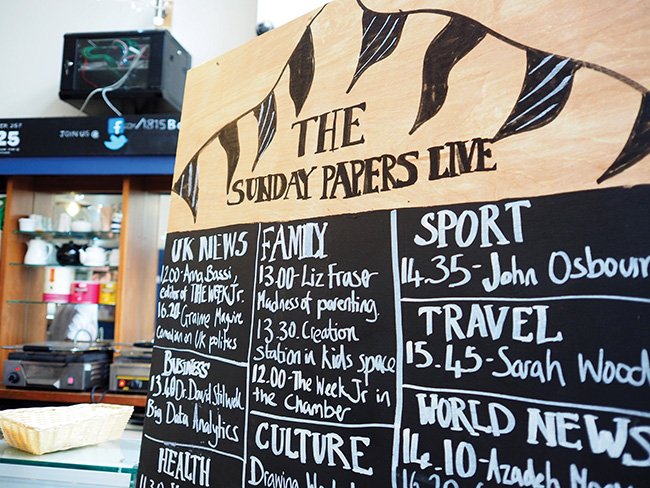 THE
SUNDAY PAPERS LIVE
UK NEWS
12.00-Anna Bassi,
editor of THE WEEK Jr.
16.20-Grainne Maguire
Comedian on UK politics
BUSINESS
13.40 Dr. David Stillwell
Big Data Analytics
HEALTH
FAMILY
13.00-Liz Fraser
Madness of parenting.
13.30. Creation
station in kids space
12.00-The Week Jr in
the Chamber
CULTURE
SPORT
14.35-John Osbourn
TRAVEL
15.45-Sarah Wood
WORLD NEWS
14.10-Azadeh
JOIN US
25